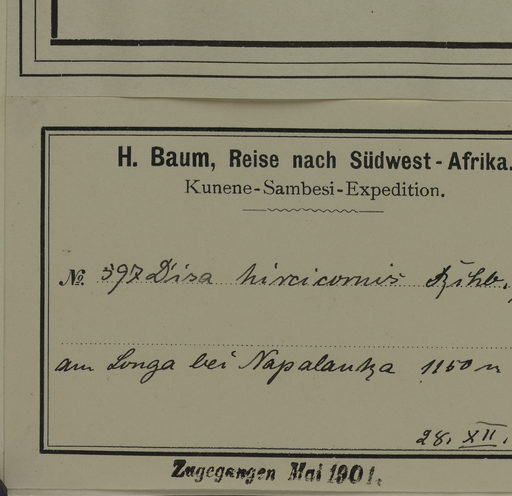 H. Baum, Reise nach Südwest-Afrika.
Kunene-Sambesi-Expedition.
No. 597 Disa hircicornis Rchb.
am Longa bei Napalanka 1150 m
28. XII.
Zugegangen Mai 1901.